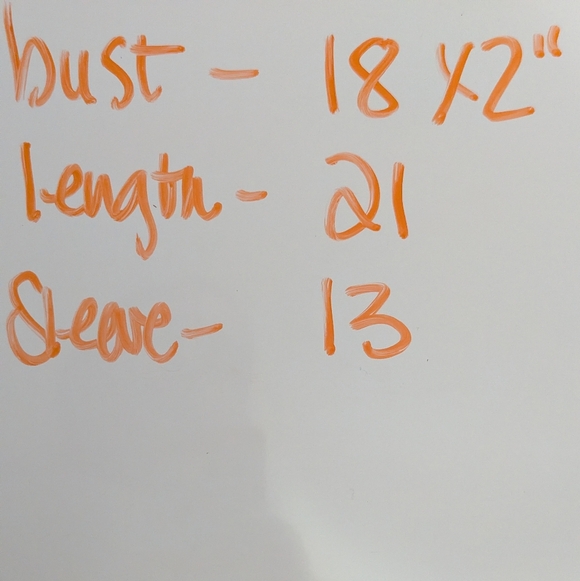 bust - 18 x2"
Length - 21
Sleave - 13